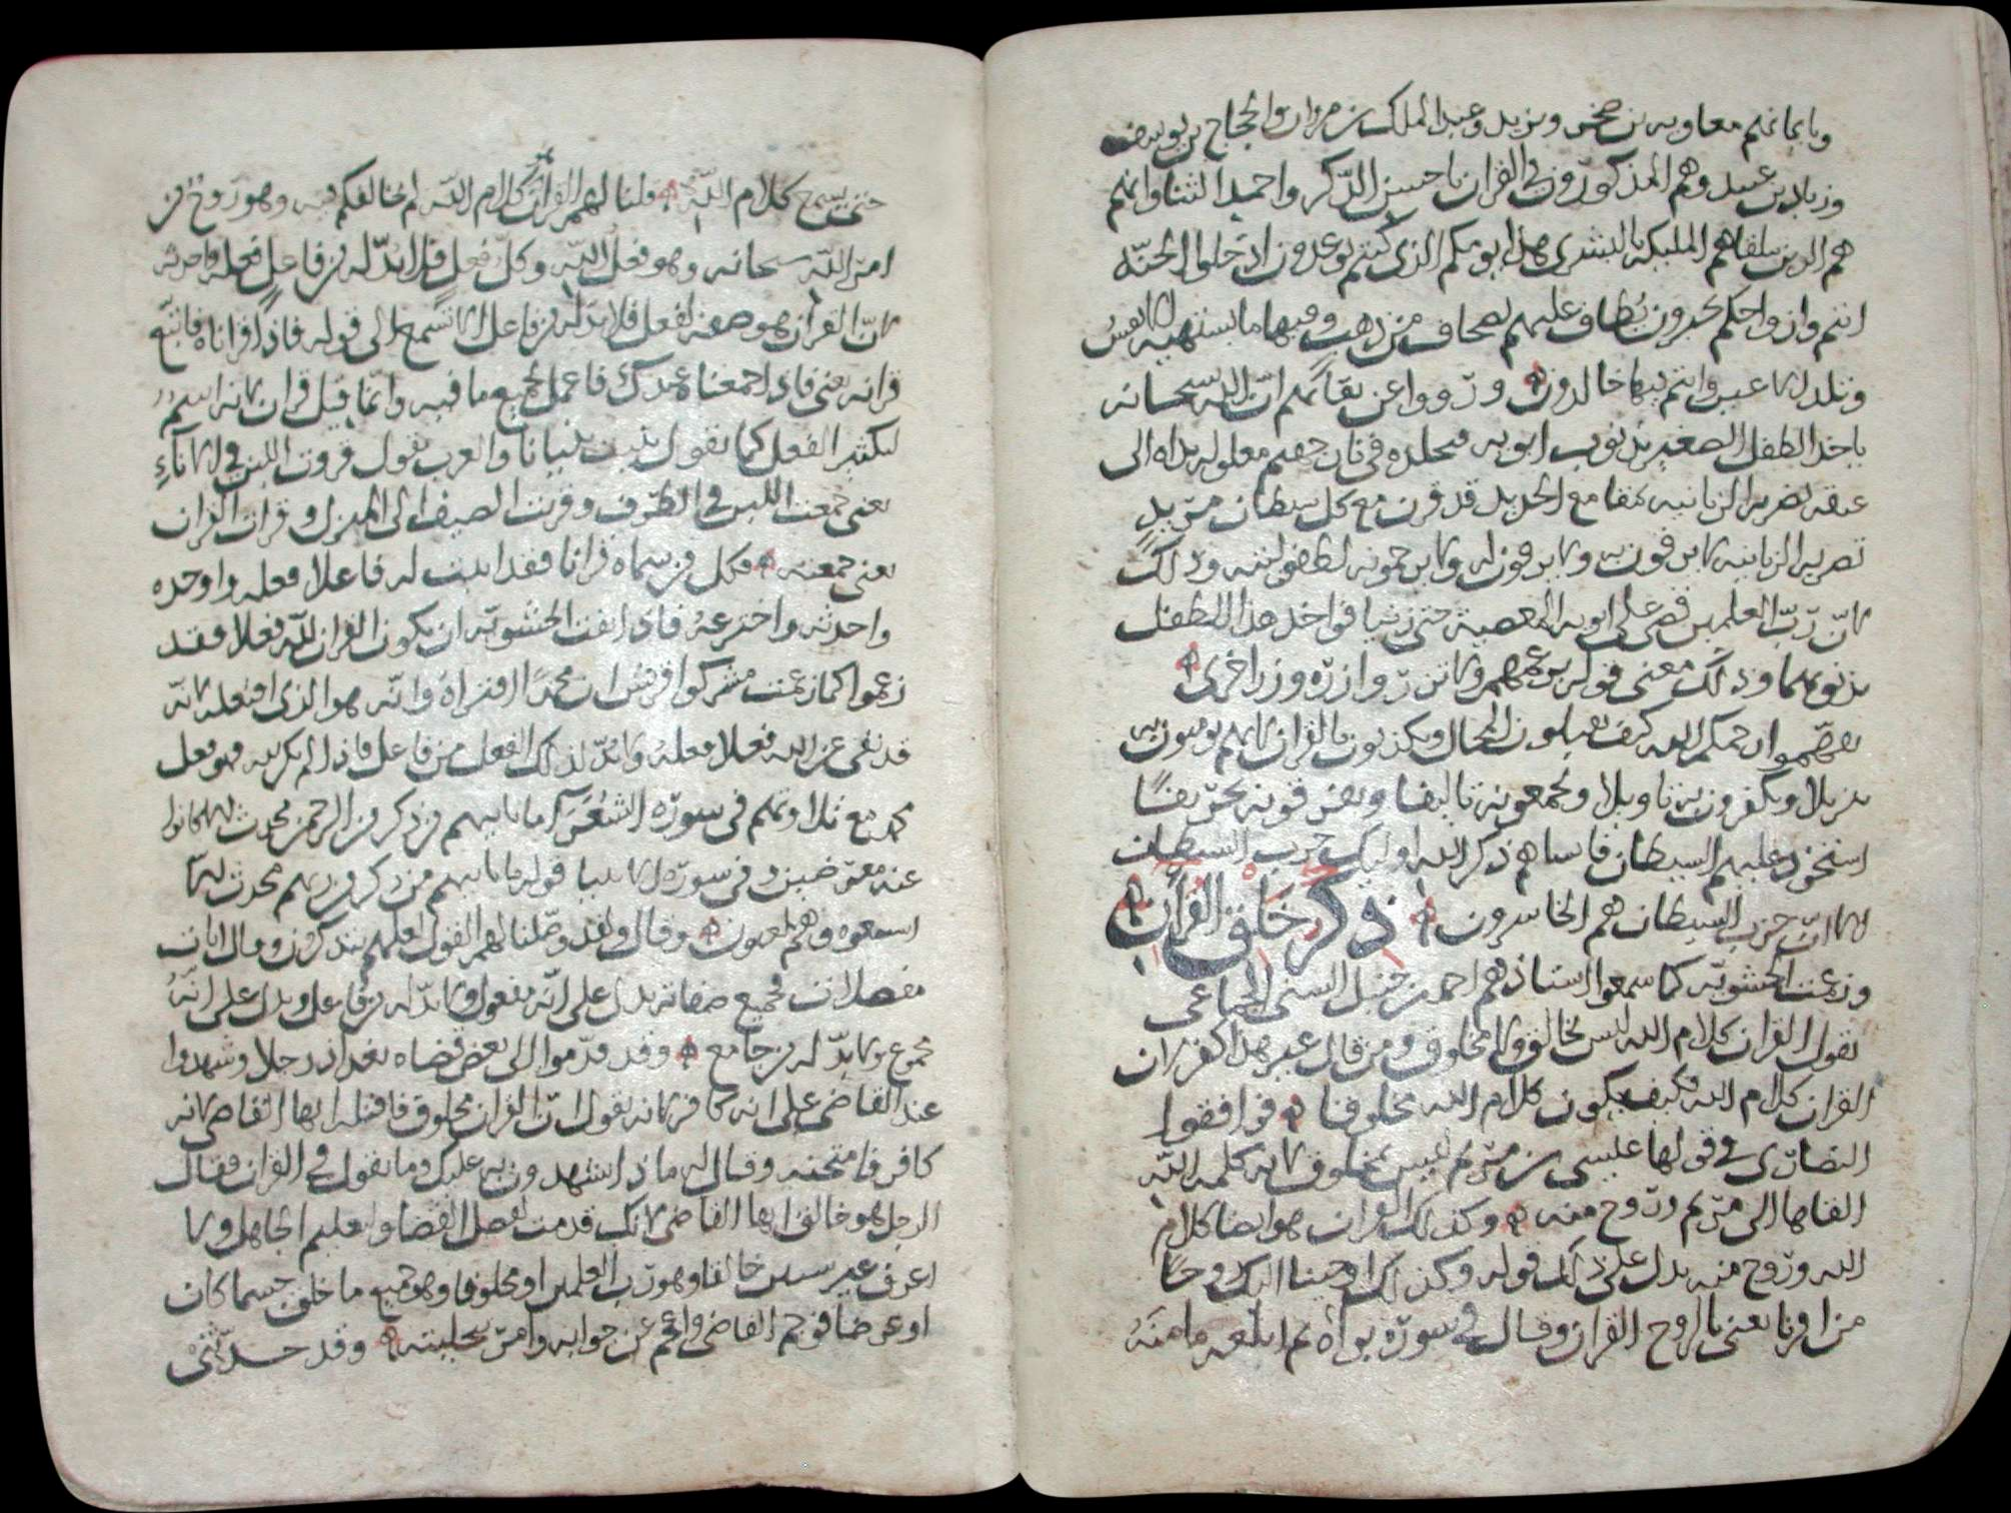 وبايمانهم معاويه بن صخر ويزيد وعبد الملك بن مروان والحجاج بن يوسف
وزياد بن عبيد وهم المذكورون في القران باحسن الذكر واحمد الثنا وانهم
هم الذين تتلقاهم المليكه بالبشرى هذا يومكم الذى كنتم توعدون ادخلوا الجنّه
انتم وازواجكم تحبرون يُطاف عليهم بصحاف من ذهب وفيها ما تشتهيه الانفسُ
وتلذ الاعين وانتم فيها خالدون ورووا عن ثقاتهم انّ الله سبحانه
ياخذ الطفل الصغير بذنوب ابويه فيخلده في نار جهنم مغلوله يداه الى
عنقه تضربه الزبانيه بمقامع الحديد قد قرن مع كل شيطان مريدٍ
تضربه الزبانيه لا يرفون به ولا يرقون له ولا يرحمونه لطفوليته وذلك
لانّ ربّ العلمين قضى على ابويه المعصية حتى زنيا فواخذ هذا الطفل
بذنوبهما وذلك معنى قوله بزعمهم ولا تزر وازرة وزر اخرى
تفهّموا رحمكم الله كيف يقبلون المحال ويكذبون بالقران لانهم يومنون به
تنزيلا ويكفرون به تاويلا ويجمعونه تاليفا ويفرقونه تحريفًا
استحوذ عليهم الشيطان فانساهم ذكر الله اوليك حزب الشيطان
الا انّ حزب الشيطان هم الخاسرون ذكر خلق القرآن
وزعمت الحشويّه كما سمعوا استاذهم احمد بن حنبل السنى الجماعى
يقول القران كلام الله ليس بخالق ولا مخلوق ومن قال غير هذا كفر لان
القران كلام الله فكيف يكون كلام الله مخلوقا فوافقوا
النصارى في قولها عليسى بن مريم ليس بمخلوق لانه كلمه اللّه
القاها الى مريم وروح منه وكذلك القران هو ايضا كلام
الله وروح منه يدل على ذلك قوله وكذلك اوحينا اليك روحا
من امرنا يعنى بالروح القران وقال في سورة براه ثم ابلغه مامنَهُ
حتى يسمع كلام اللّه قلنا لهم القران كلام اللّه لم نخالفكم فيه وهو روح من
امر اللّه سبحانه وهو فعل اللّه وكل فعل فلا بدّ له من فاعل فعله واحدثه
لانّ القران هو صفة لفعل فلا بدّ له من فاعل الا تسمع الى قوله فاذا قراناه فاتبع
قرانه يعنى فاذا جمعناه عندك فاعمل بجميع ما فيه وانّما قيل قران لانه اسمٌ
لتكثير الفعل كما تقول بنيت بنيانا والعرب تقول قريت اللبن في الاناءِ
يعنى جمعت اللبن في الظرف وقريت الضيف الى المنزل وقرات القران
يعنى جمعته فكل من سماه قرانا فقد اثبت له فاعلا فعله واوجده
واحدثه واخترعهُ فاذا نفت الحشويّه ان يكون القران للّه فعلا فقد
زعموا كما زعمت مشركوا قريش ان محمدًا افتراهُ وانّه هو الذى افتعله لانّه
قد نفى عن الله فعلا فعلهُ ولا بُدّ لذلك الفعل من فاعل فاذا لم يكن لله فهو فعل
محمد مع تلاوتهم في سورة الشعَرَآ ما ياتيهم من ذكر من الرحمن محدث الا كانوا
عنه معرضين وفي سورة الانبيا قوله ما ياتيهم من ذكر من ربهم محدث الّا
استمعوه وهم يلعبون وقال ولقد وصّلنا لهم القول لعلهم يتذكرون وقال ايات
مفصلات فجميع صفاته يدل على انّه مفعول ولا بدّ له من فاعل ويدل على انّهُ
مجموع ولا بدّ له من جامع وقد قدّموا الى بعض قضاه بغداذ رجلا وشهدوا
عند القاضى على انه كافر لانه يقول انّ القران مخلوق فاقتله ايها القاضى لانه
كافر فامتحنه وقال له ماذا يشهدون به عليك وما تقول في القران فقال
الرجل هو خالق ايها القاضى لانك قدمت لفصل القضا ولتعليم الجاهل ولا
اعرف غير سيين خالقا وهو ربّ العلمين او مخلوقا وهو جميع ما خلق جسما كان
او عرضا فوجم القاضى واعجم عن جوابه وامر بتخليته وقد حدّثنى